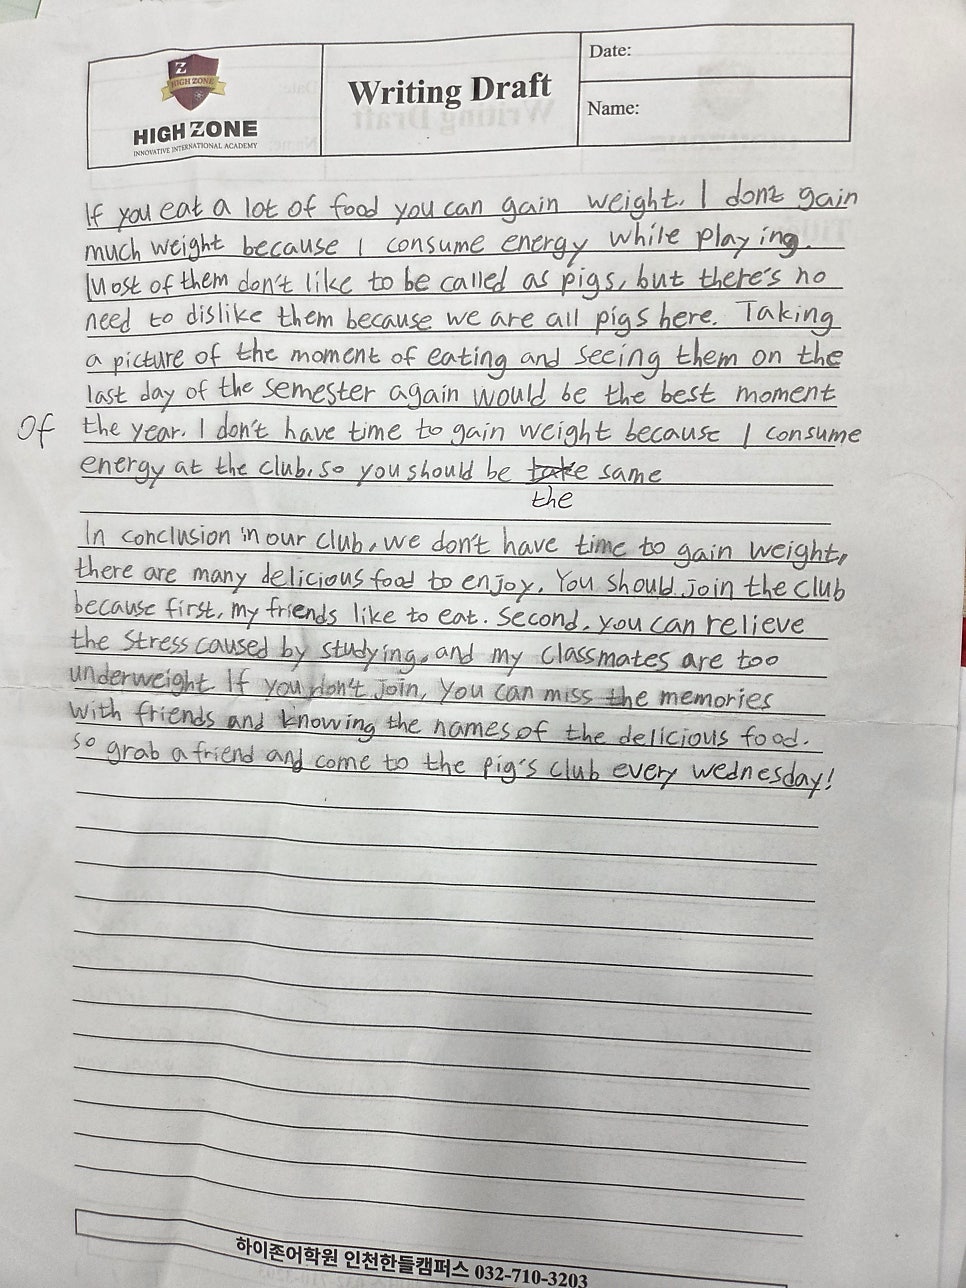 Z
HIGH ZONE
HIGH ZONE
INNOVATIVE INTERNATIONAL ACADEMY
Writing Draft
Date:
Name:
If you eat a lot of food you can gain weight. I don't gain
much weight because I consume energy while playing.
Most of them don't like to be called as pigs, but there's no
need to dislike them because we are all pigs here. Taking
a picture of the moment of eating and seeing them on the
last day of the semester again would be the best moment
Of the year. I don't have time to gain weight because I consume
energy at the club, so you should be take same
the
In conclusion in our club, we don't have time to gain weight,
there are many delicious food to enjoy. You should join the club
because first, my friends like to eat. Second, you can relieve
the stress caused by studying, and my classmates are too
underweight If you don't join, you can miss the memories
with friends and knowing the names of the delicious food.
so grab a friend and come to the pig's club every wednesday!
하이존어학원 인천한들캠퍼스 032-710-3203